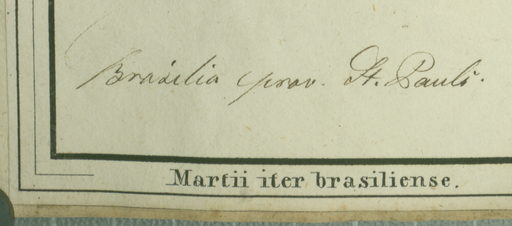 Brasilia prov. St. Pauli.
Martii iter brasiliense.